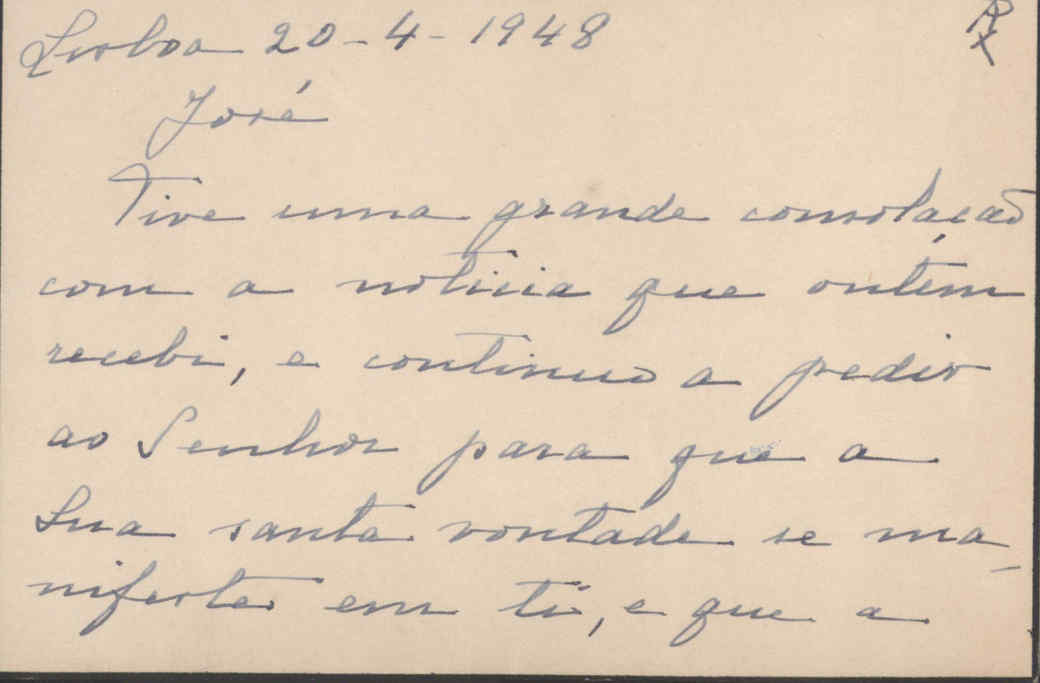 Lisboa 20-4-1948
José
Tive uma grande consolação
com a noticia que ontém
recebi, e continuo a pedir
ao Senhor para que a
Sua santa vontade se ma-
nifeste em ti, e que a